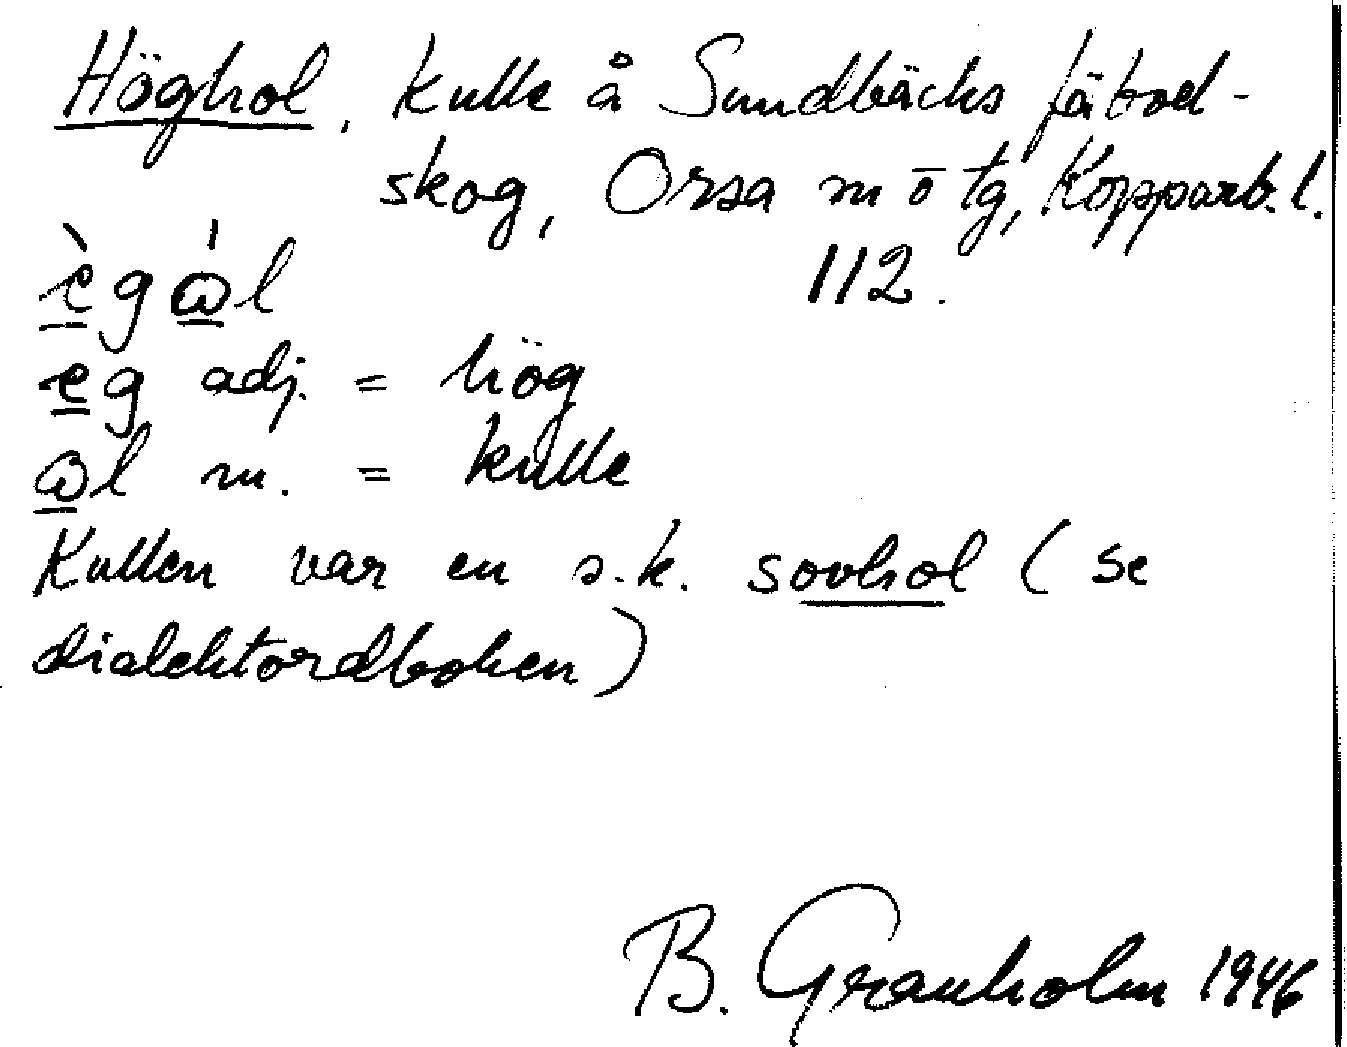 Höghol, kulle å Sundbäcks fäbod-
skog, Orsa m o tg, Kopparb. l.
112.
èg ål
eg adj. = hög
ål m. = kulle
Kullen var en s.k. sovhol (se
dialektordboken)
B. Granholm 1946